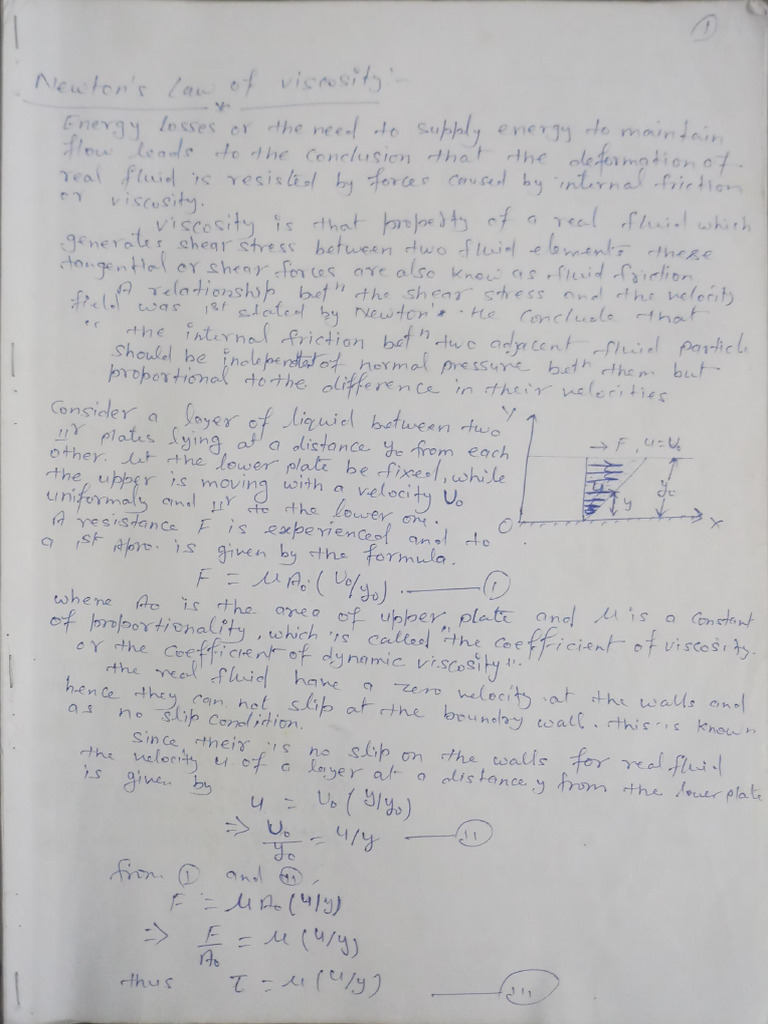 1
Newton's Law of viscosity:-
Energy losses or the need to supply energy to maintain
flow leads to the conclusion that the deformation of
real fluid is resisted by forces caused by internal friction
or viscosity.
viscosity is that property of a real fluid which
generates shear stress between two fluid elements these
tangential or shear forces are also know as fluid friction
A relationship betⁿ the shear stress and the velocity
field was 1st stated by Newton. He conclude that
" the internal friction betⁿ two adjacent fluid particle
should be independent of normal pressure betⁿ them but
proportional to the difference in their velocities
Consider a layer of liquid between two
11r plates lying at a distance y₀ from each
other. let the lower plate be fixed, while
the upper is moving with a velocity U₀
uniformaly and 11r to the lower one.
A resistance F is experienced and to
a 1st Apro. is given by the formula.
Y
→ F, u=U₀
u
y
y₀
O
X
F = μ A₀ (U₀/y₀) ——— I
where A₀ is the area of upper plate and μ is a constant
of proportionality, which is called "the coefficient of viscosity.
or the coefficient of dynamic viscosity".
the real fluid have a zero velocity at the walls and
hence they can not slip at the boundry wall. this is known
as no slip condition.
Since their is no slip on the walls for real fluid
the velocity u of a layer at a distance y from the lower plate
is given by
u = U₀ (y/y₀)
⇒ U₀/y₀ = u/y ——— II
from I and II,
F = μ A₀ (u/y)
⇒ F/A₀ = μ (u/y)
thus τ = μ (u/y) ——— III